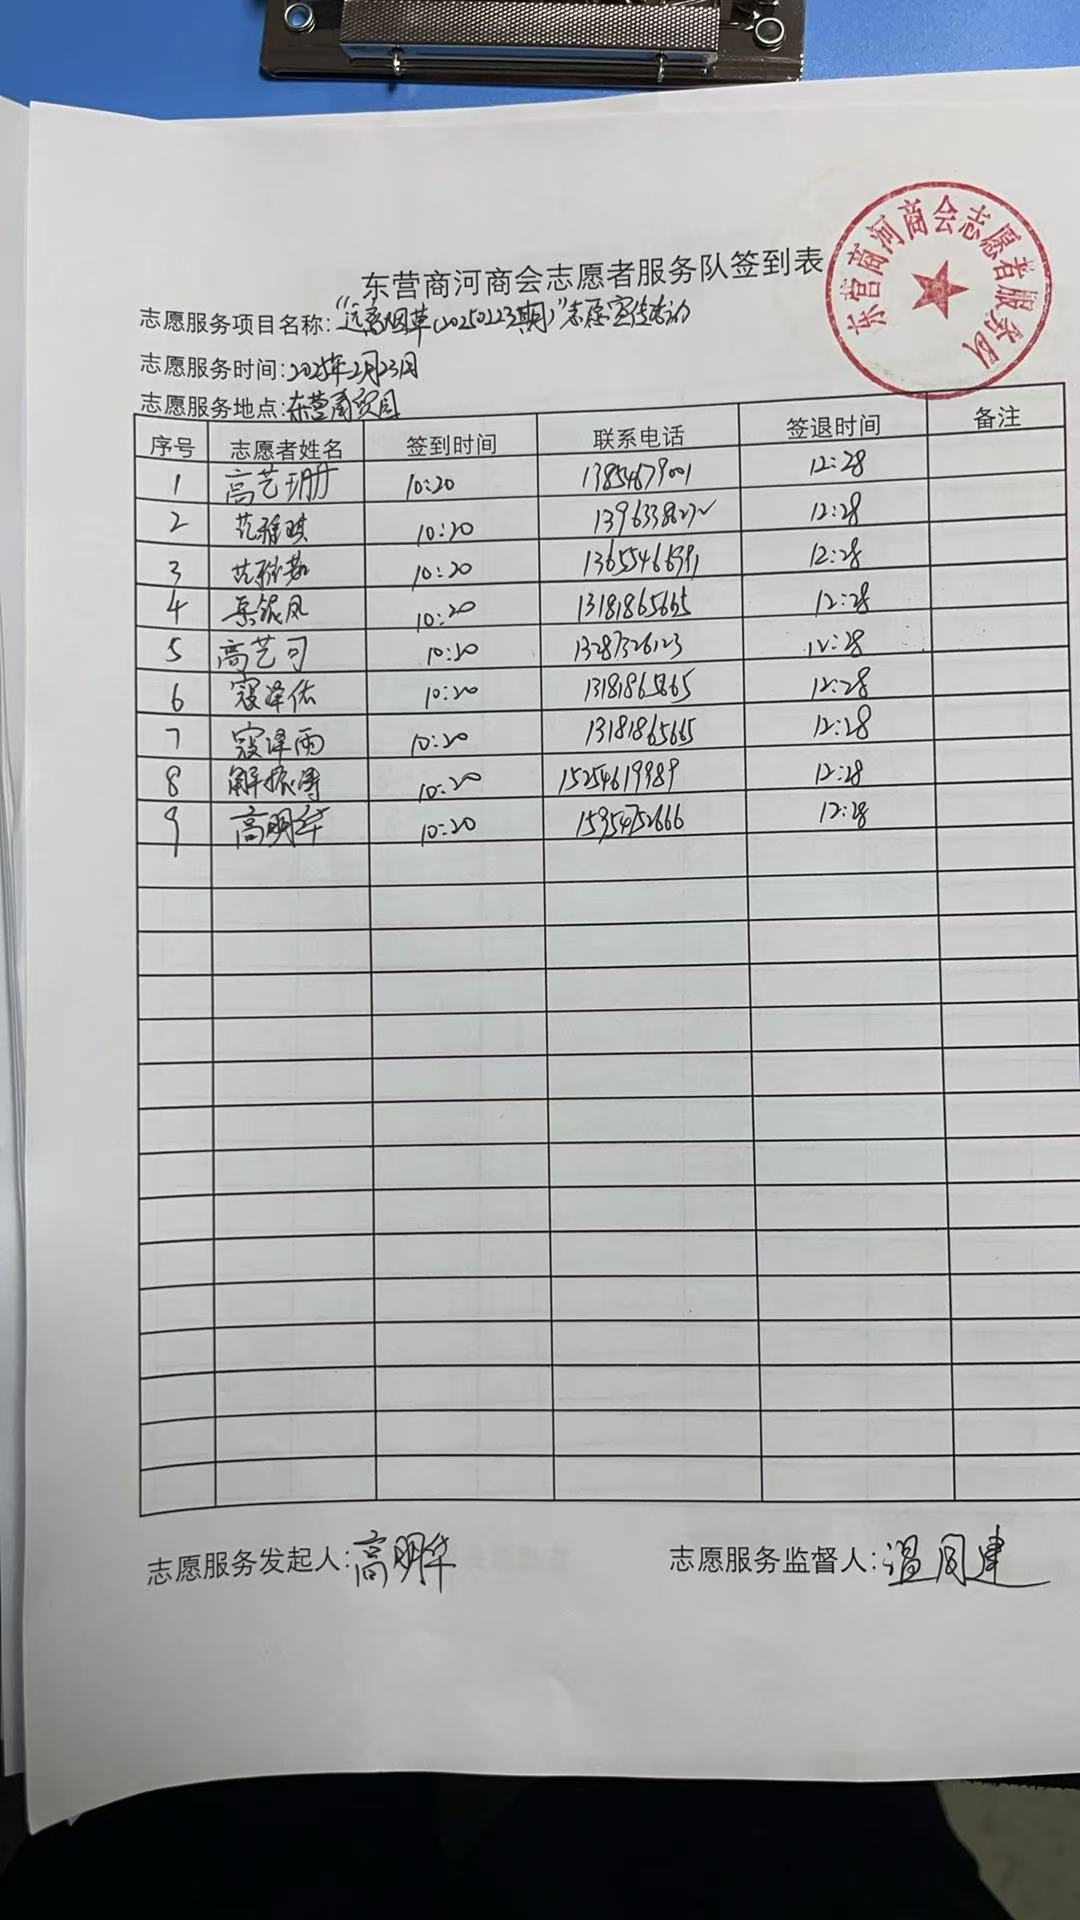 东营商河商会志愿者服务队
东营商河商会志愿者服务队签到表
志愿服务项目名称:“远离烟草(20250223期)”志愿宣传
志愿服务时间:2025年2月23日
志愿服务地点:东营商贸园
序号 志愿者姓名 签到时间 联系电话 签退时间 备注
1 高艺珊 10:20 13854679001 12:28
2 范雅琪 10:20 12:28
3 10:20 12:28
4 10:20 13181865665 12:28
5 高艺可 10:20 13287326123 12:28
6 寇泽佑 10:20 12:28
7 寇泽雨 10:20 13181865665 12:28
8 解振博 10:20 15254619989 12:28
9 高明华 10:20 15954752666 12:28
志愿服务发起人:高明华 志愿服务监督人:温同建